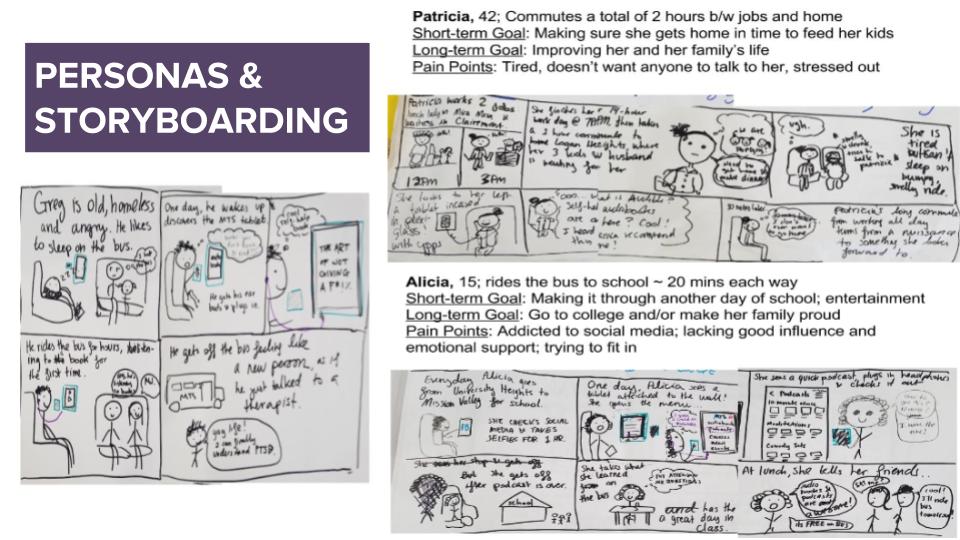 PERSONAS &
STORYBOARDING
Patricia, 42; Commutes a total of 2 hours b/w jobs and home
Short-term Goal: Making sure she gets home in time to feed her kids
Long-term Goal: Improving her and her family's life
Pain Points: Tired, doesn't want anyone to talk to her, stressed out
Patricia works 2
12pm
3pm
She finishes her 14-hour
work day @ 7pm then takes
a 2 hour commute to
home Logan Heights, where
her 3 kids w husband
is waiting for her
ugh.
She is
tired
but can't
sleep on
bumpy,
smelly ride.
She looks to her left
a tablet incased
in glass
with
cool. what is Audible
Self-help audiobooks
are a here? Cool!
I heard recommend
this one!
30 mins later
Patricia's long commute
from working all day
turns from a nuissance
to something she looks
forward to.
Alicia, 15; rides the bus to school ~ 20 mins each way
Short-term Goal: Making it through another day of school; entertainment
Long-term Goal: Go to college and/or make her family proud
Pain Points: Addicted to social media; lacking good influence and
emotional support; trying to fit in
Everyday Alicia goes
from University Heights to
Mission Valley for school.
SHE CHECK'S SOCIAL
MEDIA & TAKES
SELFIES FOR 1 HR.
One day, Alicia sees a
tablet attached to the wall!
She opens the menu
She sees a quick podcast, plugs in headphones
& checks it out
< Podcasts
10 minute
Meditations
Comedy Sets
But she gets off
after podcast is over.
school
She takes what
she learned
on
the bus
and has the
a great day in
class.
At lunch, she tells her friends...
audio
books &
podcasts
are
awesome!
its FREE on BUS
cool!
I'll ride
bus
tomorrow!
Greg is old, homeless
and angry. He likes
to sleep on the bus.
One day, he wakes up
discovers the MTS tablet
He gets his ear
buds & plugs in.
THE ART
OF NOT
GIVING
A
He rides the bus for hours, listen-
ing to the book for
the first time.
He gets off the bus feeling like
a new person, as if
he just talked to a
therapist.
MTS
yay life!
I can finally
understand PTSD.